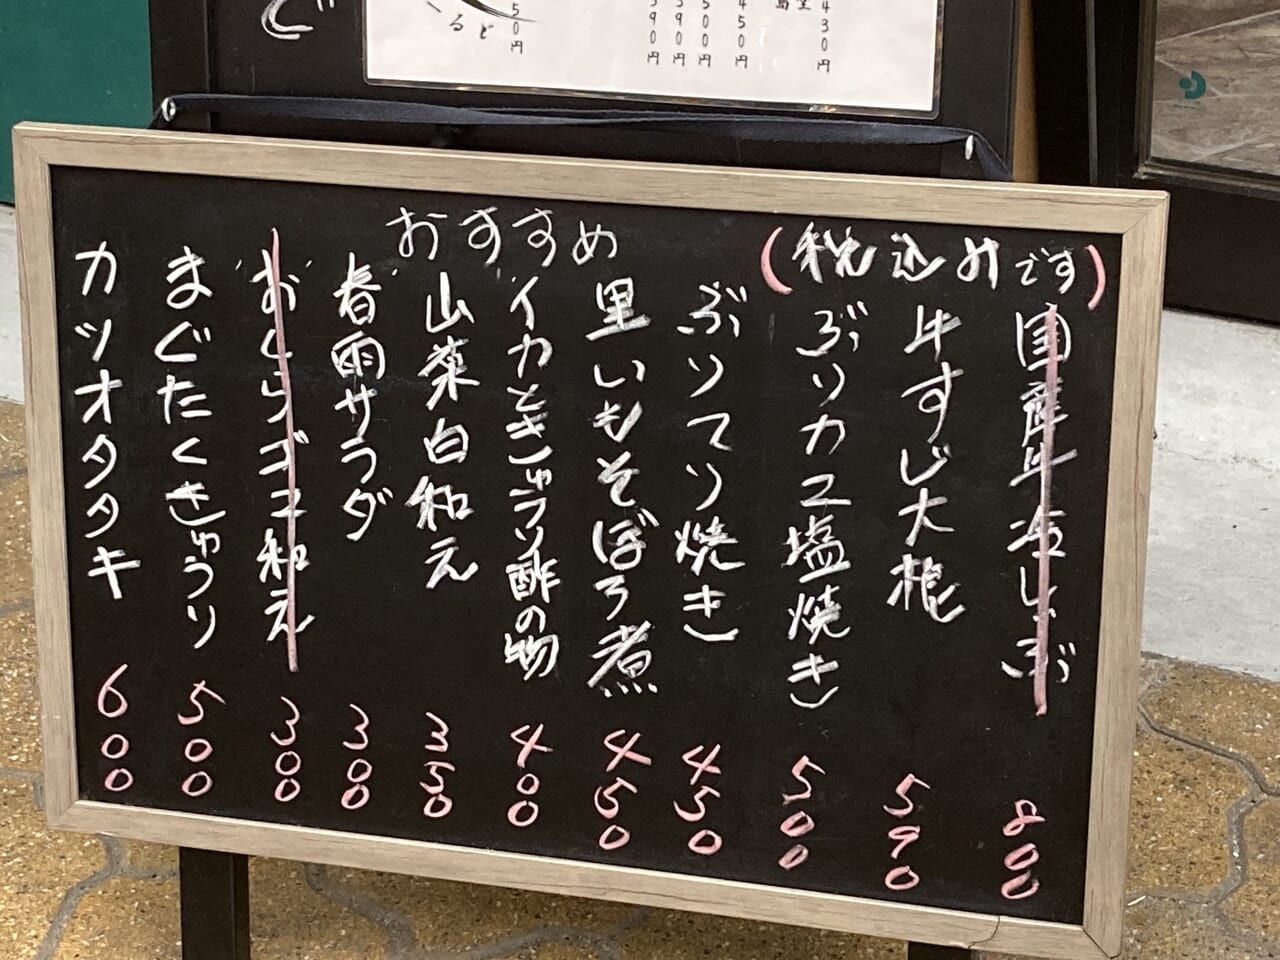 おすすめ
(税込みです)
国産牛冷しゃぶ 800
牛すじ大根 590
ぶりカマ塩焼き 500
ぶりてり焼き 450
里いもそぼろ煮 450
イカときゅうり酢の物 400
山菜白和え 350
春雨サラダ 300
おくらゴマ和え 300
まぐたくきゅうり 500
カツオタタキ 600